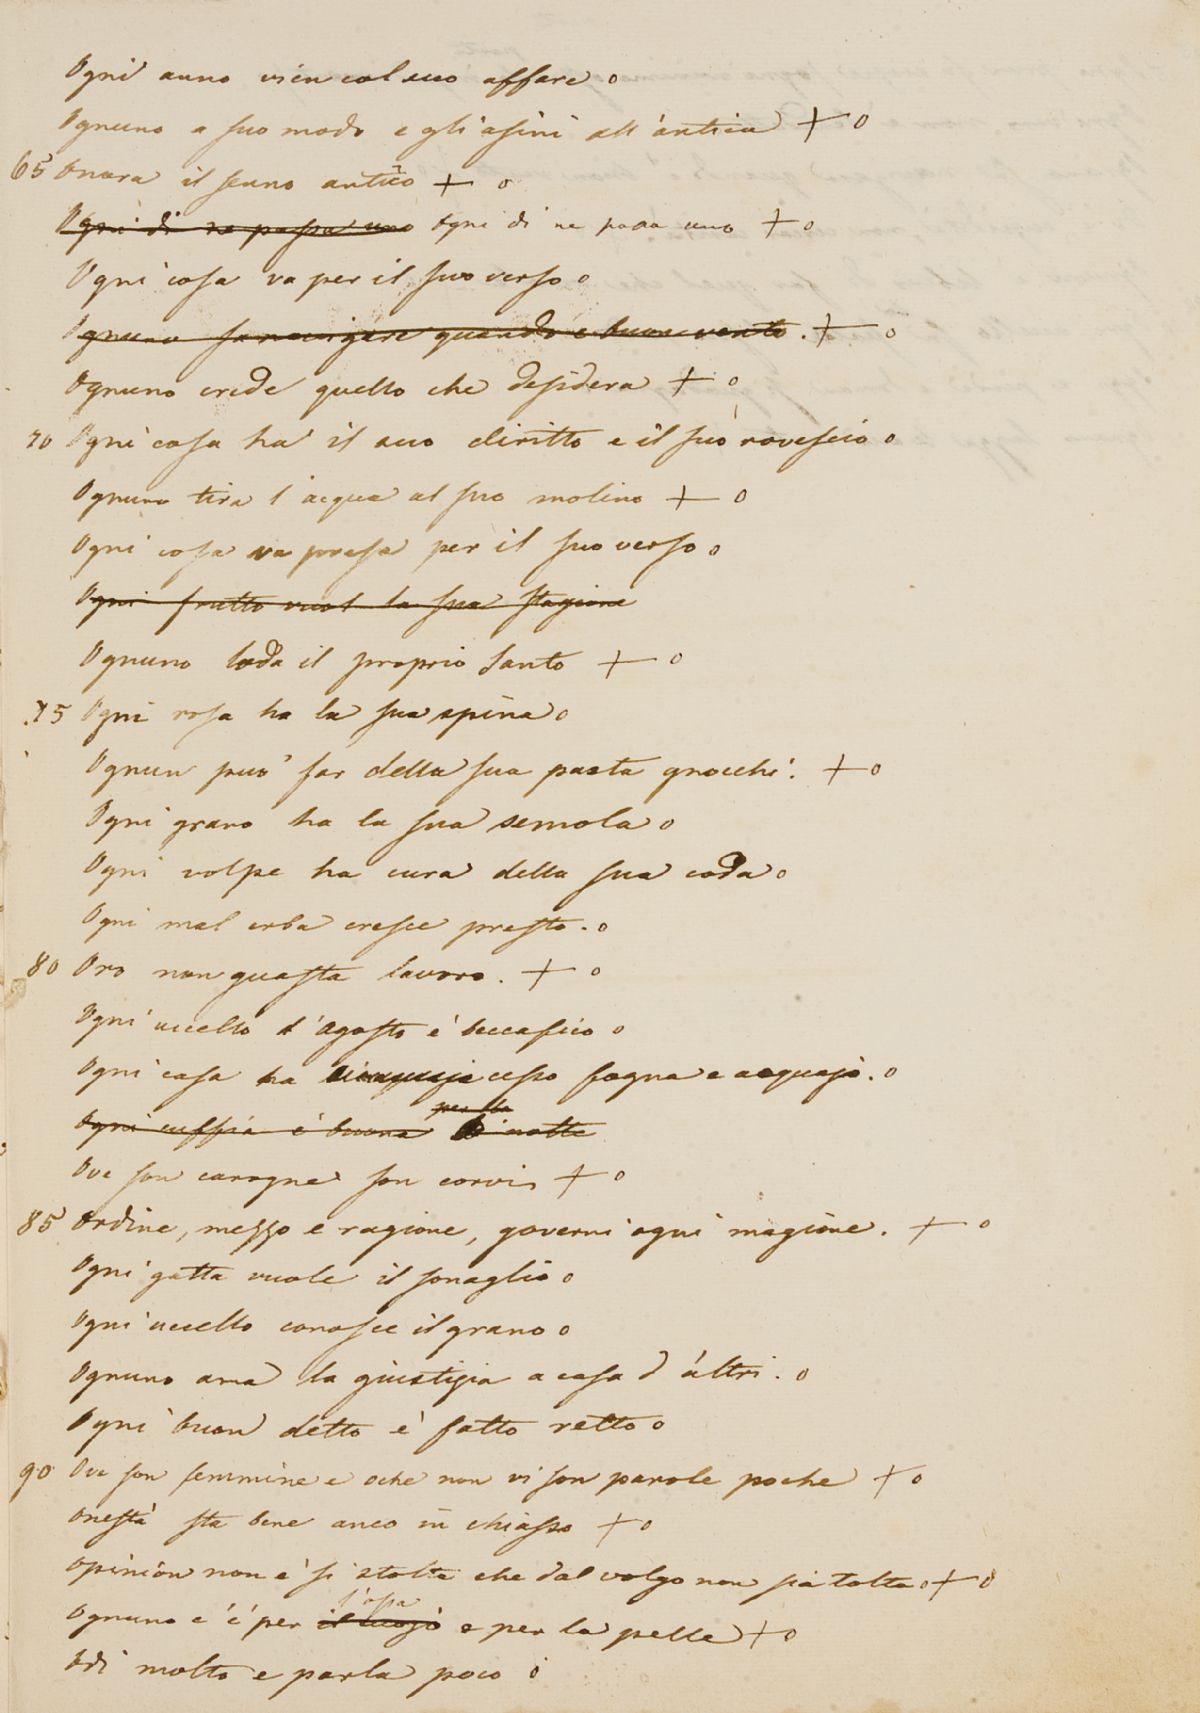 Ogni anno vien col suo affare o
Ognuno a suo modo e gli asini all'antica + o
65 Onora il senno antico + o
Ogni dì ne passa uno Ogni dì ne passa uno + o
Ogni cosa va per il suo verso o
Ognuno sa navigare quando e buon vento. + o
Ognuno crede quello che desidera + o
70 Ogni cosa ha il suo diritto e il suo rovescio o
Ognuno tira l'acqua al suo molino + o
Ogni cosa va presa per il suo verso o
Ogni frutto vuol la sua stagione
Ognuno loda il proprio Santo + o
75 Ogni rosa ha la sua spina o
Ognun può far della sua pasta gnocchi. + o
Ogni grano ha la sua semola o
Ogni volpe ha cura della sua coda o
Ogni mal erba cresce presto. o
80 Oro non guasta lavoro. + o
Ogni uccello d'Agosto è beccafico o
Ogni casa ha cesso fogna e acquajo. o
per la
Ogni cuffia è buona di notte
Ove son carogne son corvi + o
85 Ordine, mezzo e ragione, governi ogni magione. + o
Ogni gatta vuole il sonaglio o
Ogni uccello conosce il grano o
Ognuno ama la giustizia a casa d'altri. o
Ogni buon detto è fatto retto o
90 Ove son femmine e oche non vi son parole poche + o
Onestà sta bene anco in chiasso + o
Opinion non è sì stolta che dal volgo non sia tolta o + o
l'ossa
Ognuno c'è per il cuojo e per la pelle + o
Odi molto e parla poco o